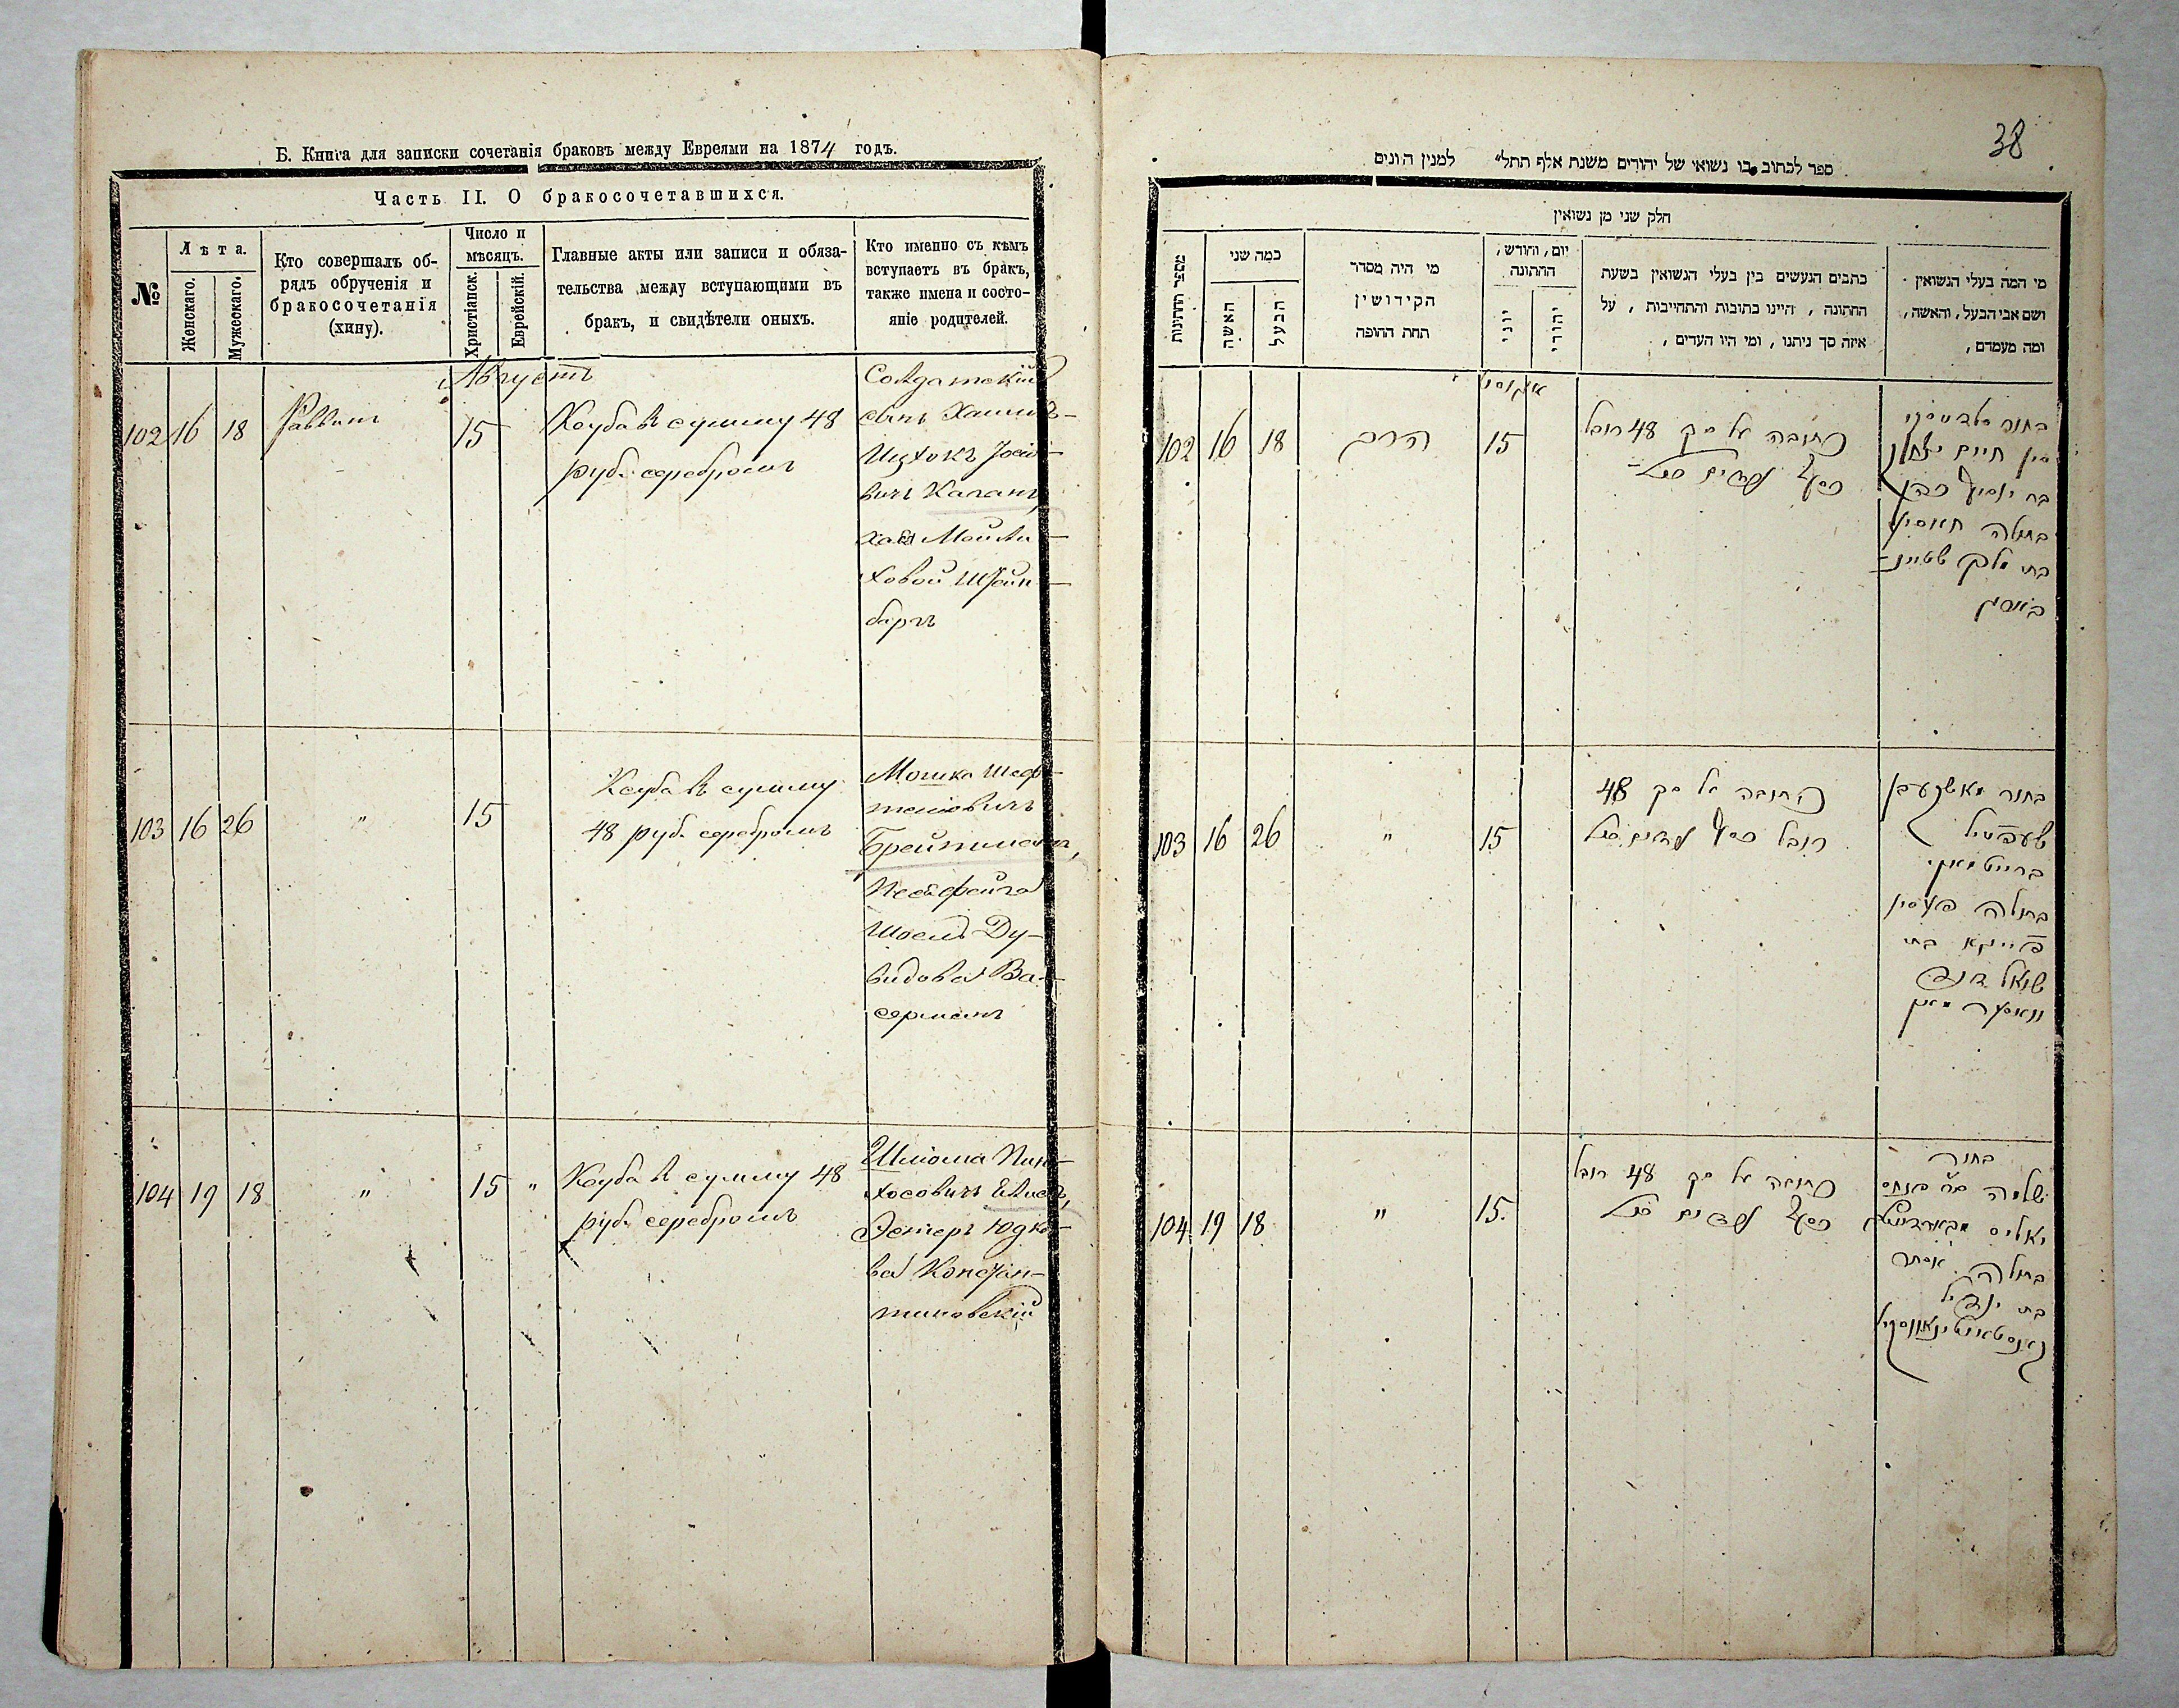 Б. Книга для записки сочетанія браковъ между Евреями на 1874 годъ.
Часть II. О бракосочетавшихся.
№
Лѣта.
Женскаго.
Мужескаго.
Кто совершалъ об-
рядъ обрученія и
бракосочетанія
(хину).
Число и
мѣсяцъ.
Христіанск.
Еврейскій.
Главные акты или записи и обяза-
тельства между вступающими въ
бракъ, и свидѣтели оныхъ.
Кто именно съ кѣмъ
вступаетъ въ бракъ,
также имена и состо-
яніе родителей.
Августъ
102 16 18 Раввинъ 15
Ксуба въ сумму 48
руб. серебромъ
Солдатскій
сынъ Хаимъ-
Ицхокъ
Каганъ,
Хая
ховой Штейн-
баргъ
103 16 26 " 15
Ксуба въ сумму
48 руб. серебромъ
Мошка Шеф-
теліовичъ
Брейтманъ,
Песя Фейга
Шоель Ду-
видова Ва-
серманъ
104 19 18 " 15 "
Ксуба въ сумму 48
руб. серебромъ
Шліома Пин-
хосовичъ
Эстеръ Юдко-
ва Констан-
тиновскій
38
ספר לכתוב בו נשואי של יהודים משנת אלף תתל״ למנין היונים
חלק שני מן נשואין
מספר החתונות
כמה שני
האשה
הבעל
מי היה מסדר
הקידושין
תחת החופה
יום, וחודש,
החתונה
יוני
יהודי
כתבים הנעשים בין בעלי הנשואין בשעת
החתונה, היינו כתובות והתחייבות, על
איזה סך ניתנו, ומי היו העדים,
מי המה בעלי הנשואין
ושם אבי הבעל, והאשה,
ומה מעמדם,
102 16 18 הרב 15
כתובה על סך 48 רובל
כסף
בחור
חיים יצחק
בתולה
בת
103 16 26 " 15
כתובה על סך 48
רובל כסף
בחור
שעפטיל
ברייטמאן
בתולה פעסיא
פייגא בת
שואל דוד
וואסערמאן
104 19 18 " 15.
כתובה על סך 48 רובל
כסף
בחור
שלמה בר פנחס
בתולה אסתר
בת יודיל
קאנסטאנטינאווסקי